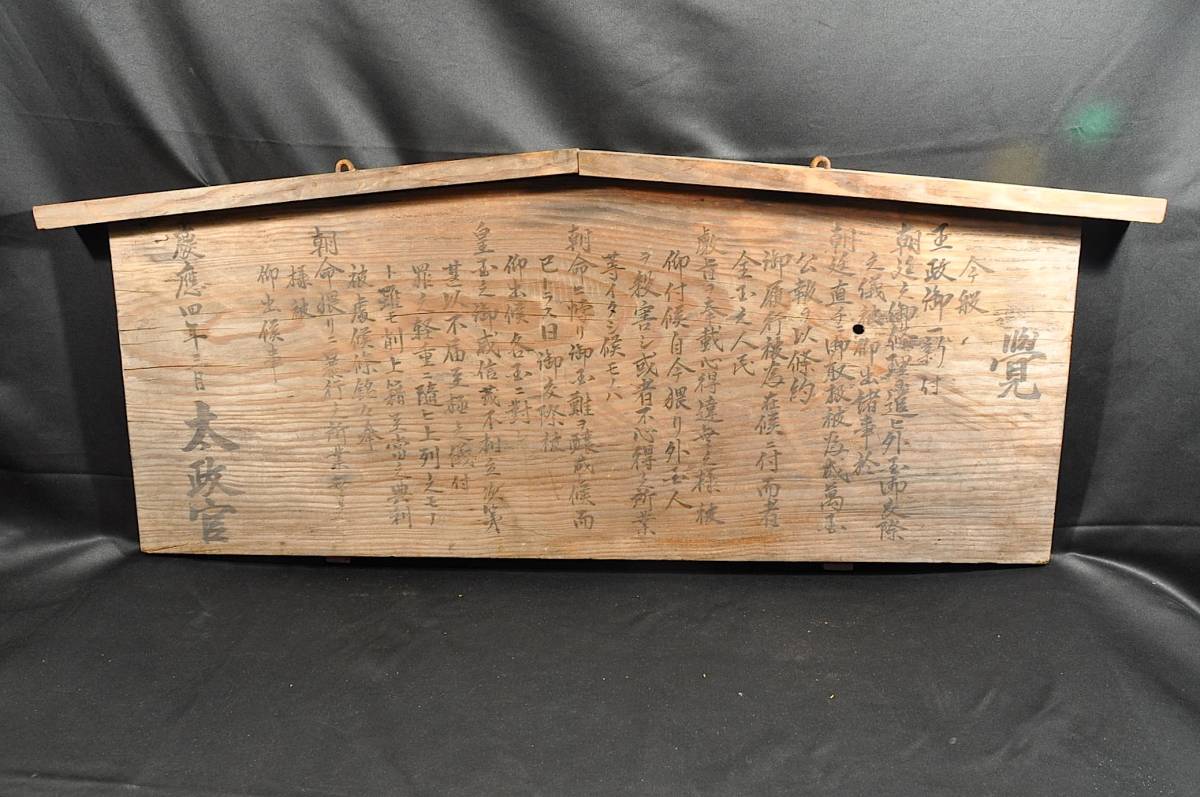 覺
今般
王政御一新ニ付
朝廷之御條理ヲ追ヒ外國御交際
之儀被 仰出諸事於
朝廷直チニ御取扱被為成萬国
公報ヲ以條約
御履行被為在候ニ付而者
全国之人民
叡旨ヲ奉戴心得違無之様被
仰付候自今猥リニ外国人
ヲ殺害シ或者不心得之所業
等イタシ候モノハ
朝命ニ悖リ御国難ヲ醸成候而
已ナラス旦 御交際被
仰出候各国ニ對
皇国之御威信モ不相立次第
甚以不届至極之儀ニ付
罪之軽重ニ隨ヒ上列之モノ
ト雖モ削上籍至當之典刑
被處候條銘々奉
朝命猥リニ暴行之所業無之
様被
仰出候事
慶應四年三月
太政官